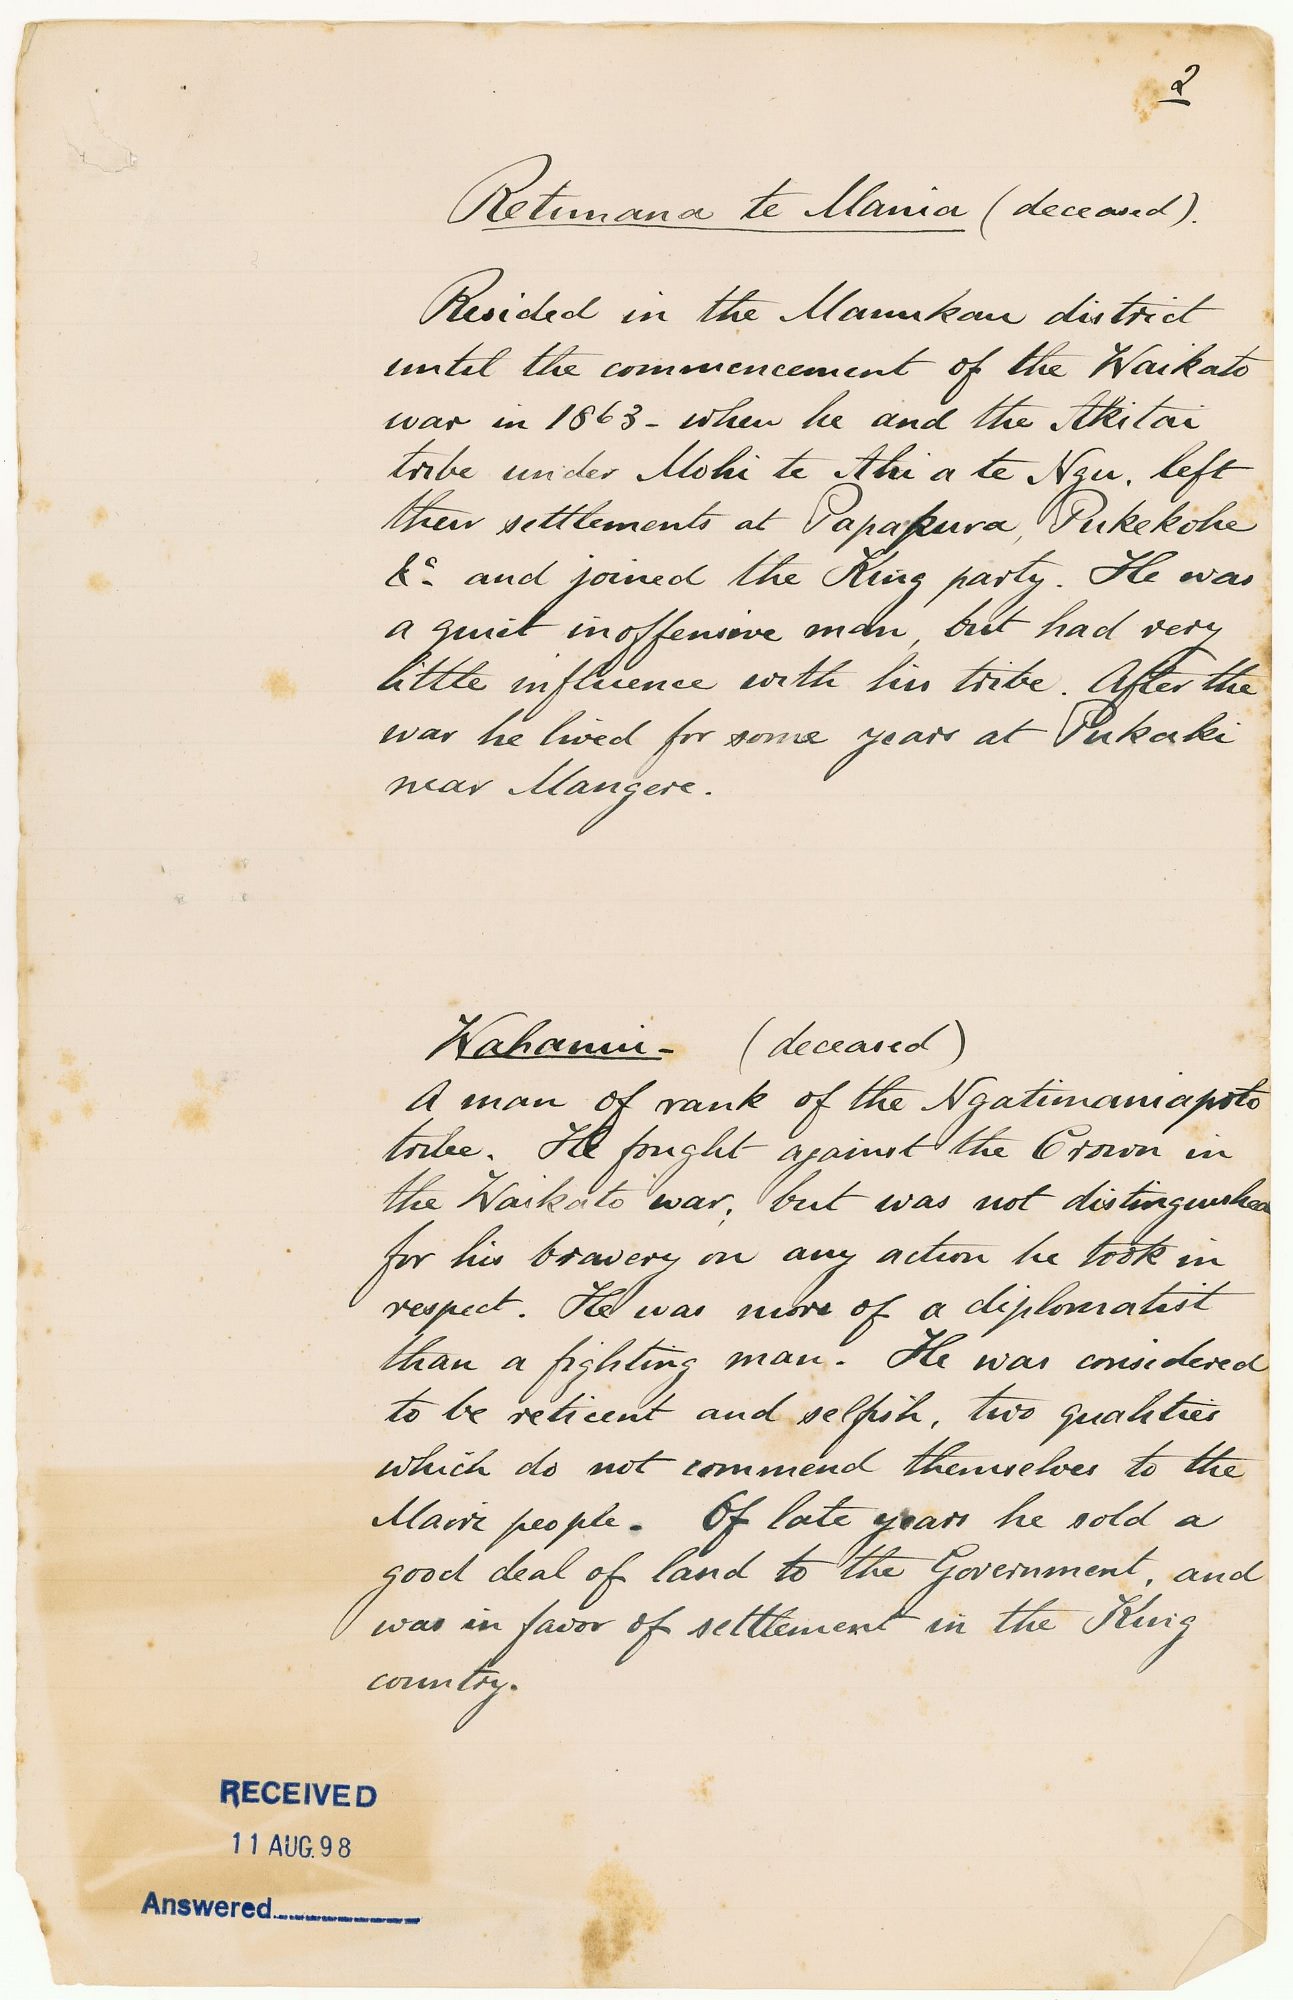 2
Retimana te Mania (deceased).
Resided in the Manukau district
until the commencement of the Waikato
war in 1863 - when he and the Akitai
tribe under Mohi te Ahi a te Ngu, left
their settlements at Papakura, Pukekohe
&c. and joined the King party. He was
a quiet inoffensive man, but had very
little influence with his tribe. After the
war he lived for some years at Pukaki
near Mangere.
Wahanui - (deceased)
A man of rank of the Ngatimaniapoto
tribe. He fought against the Crown in
the Waikato war, but was not distinguished
for his bravery on any action he took in
respect. He was more of a diplomatist
than a fighting man. He was considered
to be reticent and selfish, two qualities
which do not commend themselves to the
Maori people. Of late years he sold a
good deal of land to the Government, and
was in favor of settlement in the King
country.
RECEIVED
11 AUG. 98
Answered